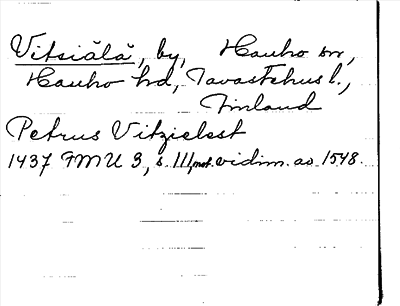 Vitsiälä, by, Hauho sn,
Hauho hd, Tavastehus l.,
Finland
Petrus Vitzielest
1437 FMU 3, s. 111, vidim. as 1548.